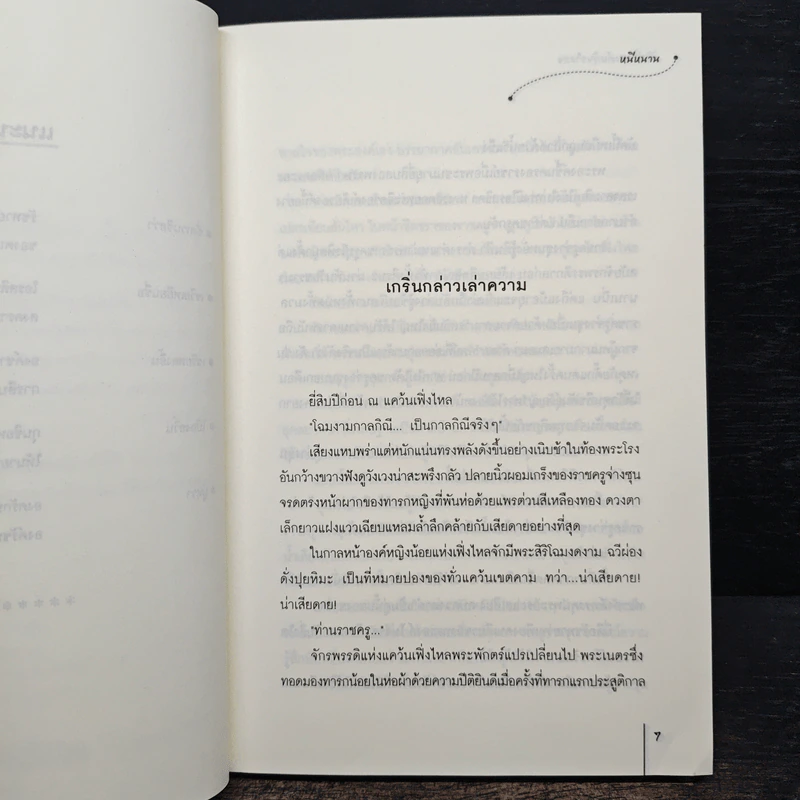 หนีหนาน
เกริ่นกล่าวเล่าความ
ยี่สิบปีก่อน ณ แคว้นเฟิ่งไหล
"โฉมงามกาลกิณี... เป็นกาลกิณีจริงๆ"
เสียงแหบพร่าแต่หนักแน่นทรงพลังดังขึ้นอย่างเนิบช้าในท้องพระโรง
อันกว้างขวางฟังดูวังเวงน่าสะพรึงกลัว ปลายนิ้วผอมเกร็งของราชครูจ่างซุน
จรดตรงหน้าผากของทารกหญิงที่พันห่อด้วยแพรต่วนสีเหลืองทอง ดวงตา
เล็กยาวแฝงแววเฉียบแหลมล้ำลึกคล้ายกับเสียดายอย่างที่สุด
ในกาลหน้าองค์หญิงน้อยแห่งเฟิ่งไหลจักมีพระสิริโฉมงดงาม ฉวีผ่อง
ดั่งปุยหิมะ เป็นที่หมายปองของทั่วแคว้นเขตคาม ทว่า...น่าเสียดาย!
น่าเสียดาย!
"ท่านราชครู..."
จักรพรรดิแห่งแคว้นเฟิ่งไหลพระพักตร์แปรเปลี่ยนไป พระเนตรซึ่ง
ทอดมองทารกน้อยในห่อผ้าด้วยความปีติยินดีเมื่อครั้งที่ทารกแรกประสูติกาล
7